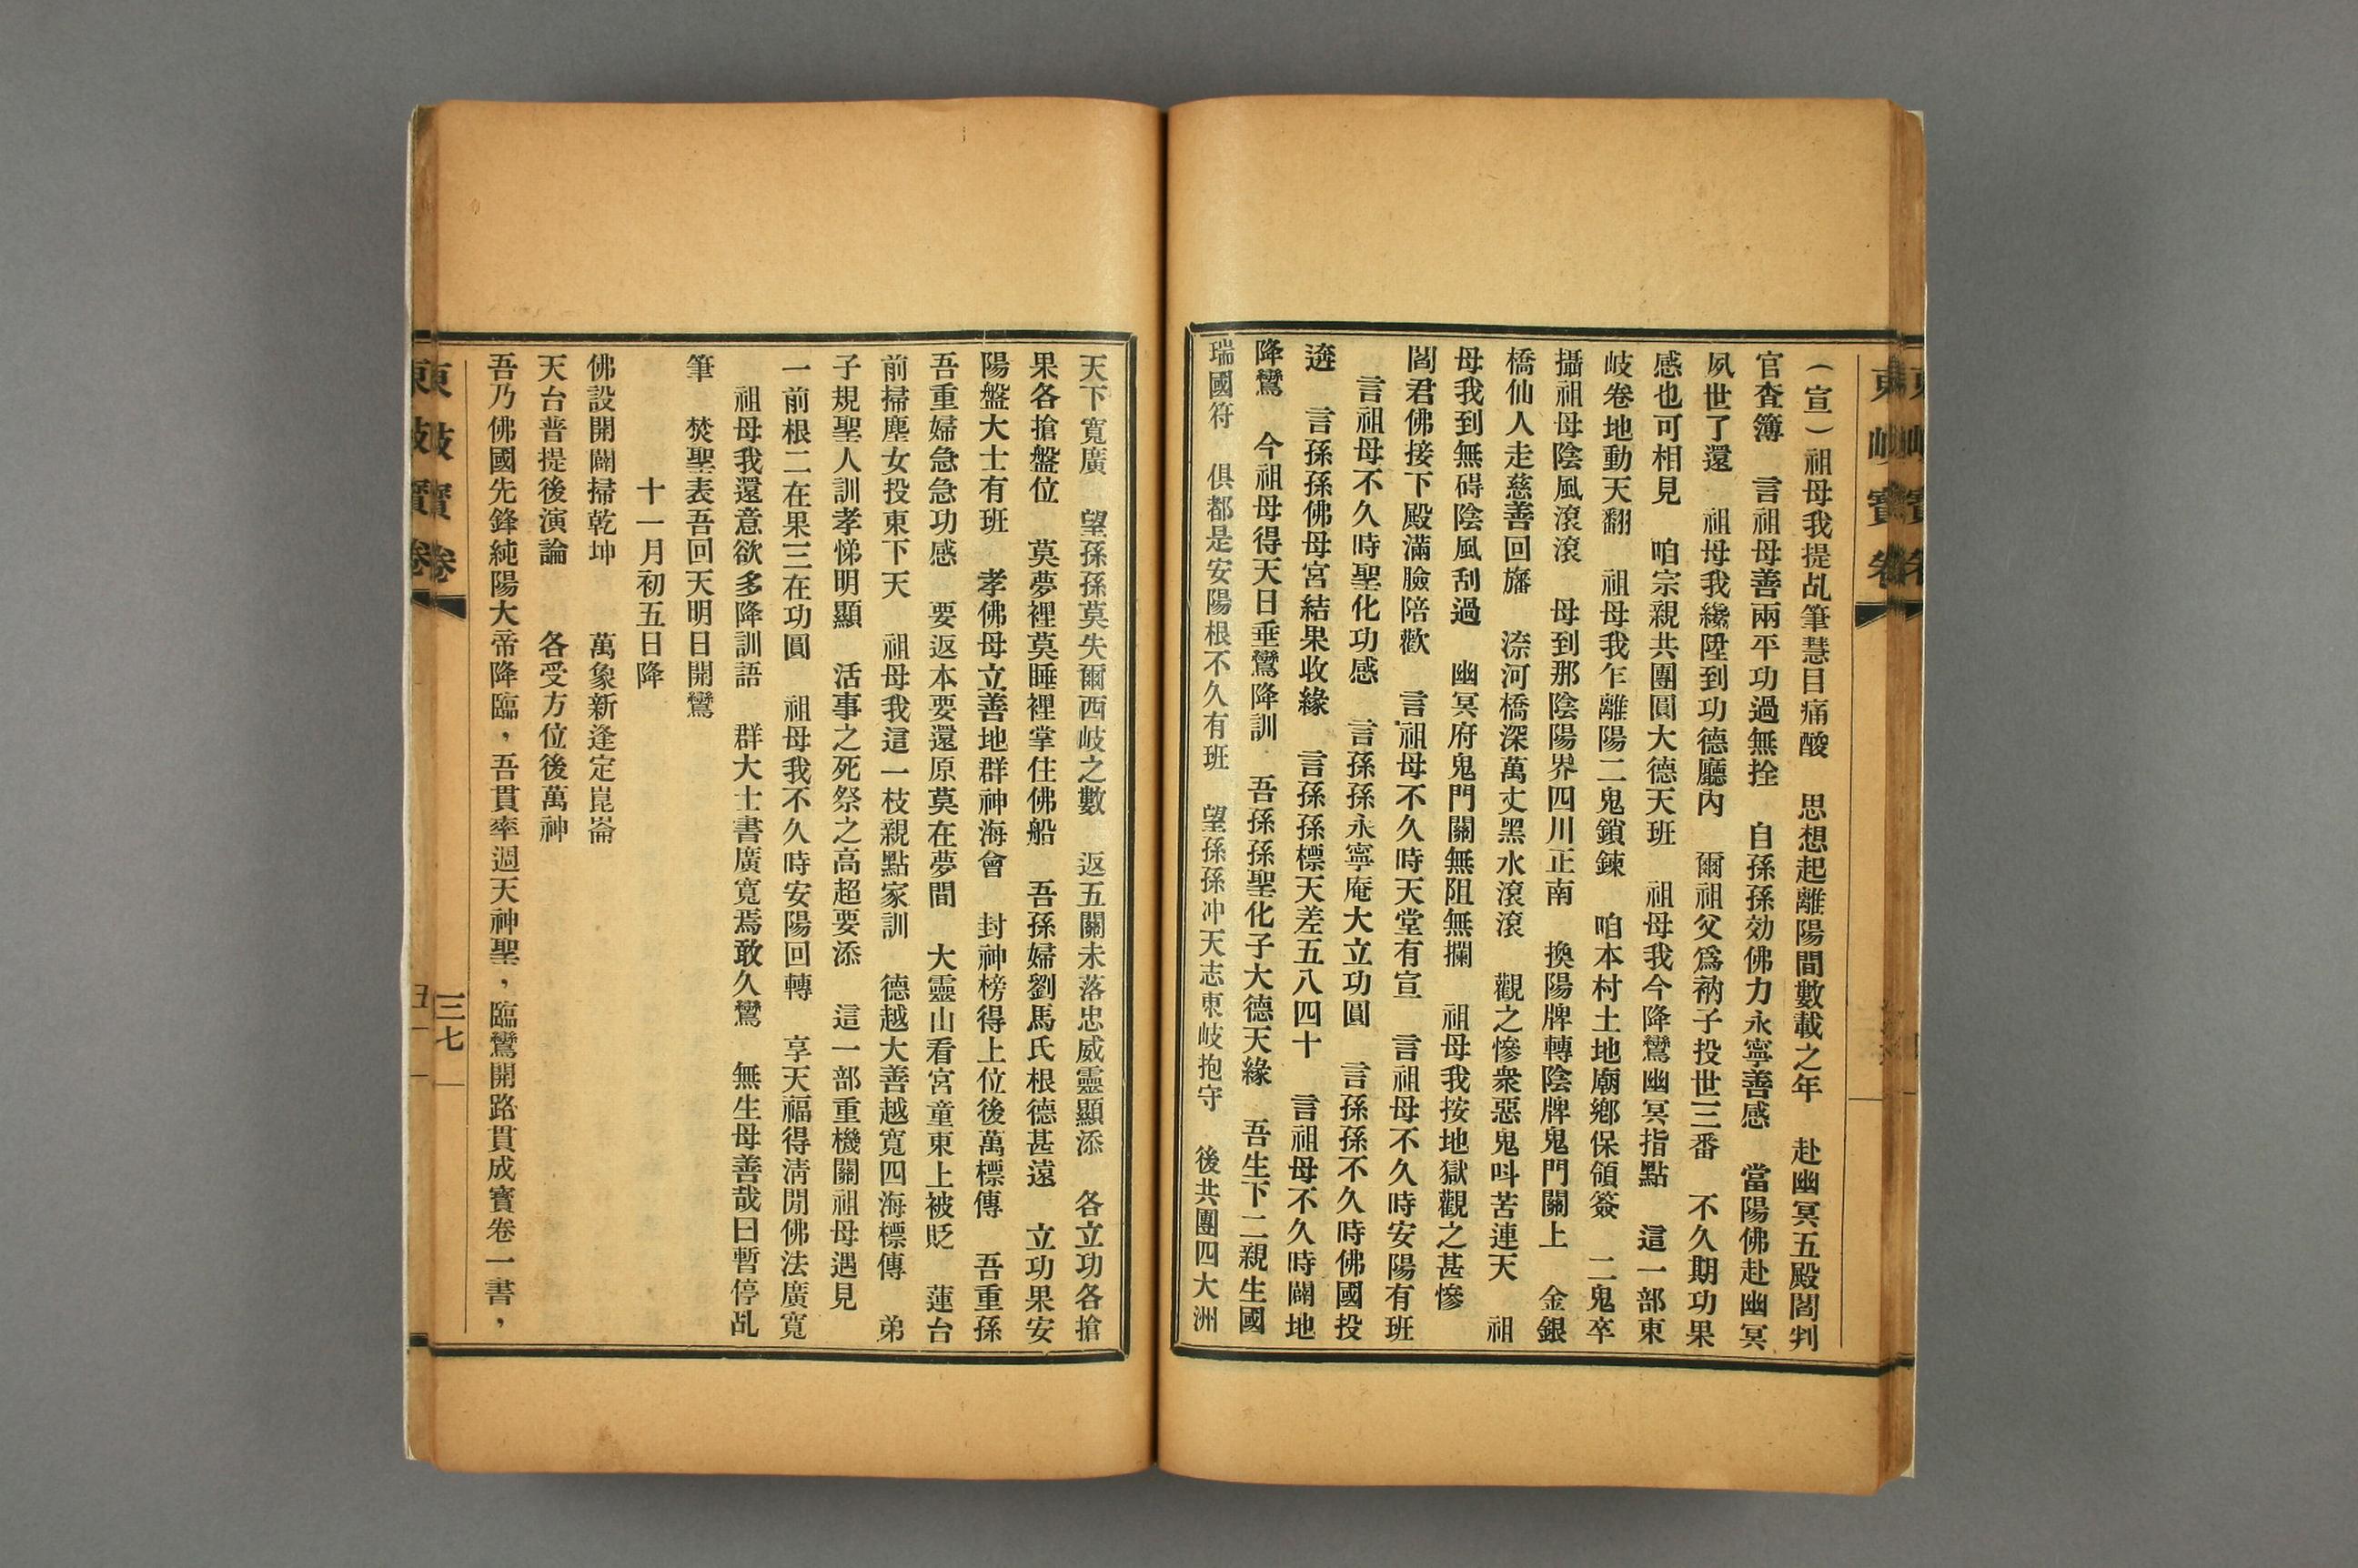 東岐寶卷
（宣）祖母我提乩筆慧目痛酸　思想起離陽間數載之年　赴幽冥五殿閻判
官査簿　言祖母善兩平功過無拴　自孫孫効佛力永寧善感　當陽佛赴幽冥
夙世了還　祖母我纔陞到功德廳內　爾祖父爲衲子投世三番　不久期功果
感也可相見　咱宗親共團圓大德天班　祖母我今降鸞幽冥指點　這一部東
岐卷地動天翻　祖母我乍離陽二鬼鎖鍊　咱本村土地廟鄕保領簽　二鬼卒
攝祖母陰風滾滾　母到那陰陽界四川正南　換陽牌轉陰牌鬼門關上　金銀
橋仙人走慈善回旛　渿河橋深萬丈黑水滾滾　觀之慘衆惡鬼呌苦連天　祖
母我到無碍陰風刮過　幽冥府鬼門關無阻無攔　祖母我按地獄觀之甚慘
閻君佛接下殿滿臉陪歡　言祖母不久時天堂有宣　言祖母不久時安陽有班
言祖母不久時聖化功感　言孫孫永寧庵大立功圓　言孫孫不久時佛國投
遴　言孫孫佛母宮結果收緣　言孫孫標天差五八四十　言祖母不久時闢地
降鸞　今祖母得天日垂鸞降訓　吾孫孫聖化子大德天緣　吾生下二親生國
瑞國符　俱都是安陽根不久有班　望孫孫冲天志東岐抱守　後共團四大洲
天下寬廣　望孫孫莫失爾西岐之數　返五關未落忠威靈顯添　各立功各搶
果各搶盤位　莫夢裡莫睡裡掌住佛船　吾孫婦劉馬氏根德甚遠　立功果安
陽盤大士有班　孝佛母立善地群神海會　封神榜得上位後萬標傳　吾重孫
吾重婦急急功感　要返本要還原莫在夢間　大靈山看宮童東上被貶　蓮台
前掃塵女投東下天　祖母我這一枝親點家訓　德越大善越寬四海標傳　弟
子規聖人訓孝悌明顯　活事之死祭之高超要添　這一部重機關祖母遇見
一前根二在果三在功圓　祖母我不久時安陽回轉　享天福得淸閒佛法廣寬
祖母我還意欲多降訓語　群大士書廣寬焉敢久鸞　無生母善哉曰暫停乩
筆　焚聖表吾回天明日開鸞
十一月初五日降
佛設開闢掃乾坤　萬象新逢定崑崙
天台普提後演論　各受方位後萬神
吾乃佛國先鋒純陽大帝降臨，吾貫率週天神聖，臨鸞開路貫成寳卷一書，
東岐寳卷
三七